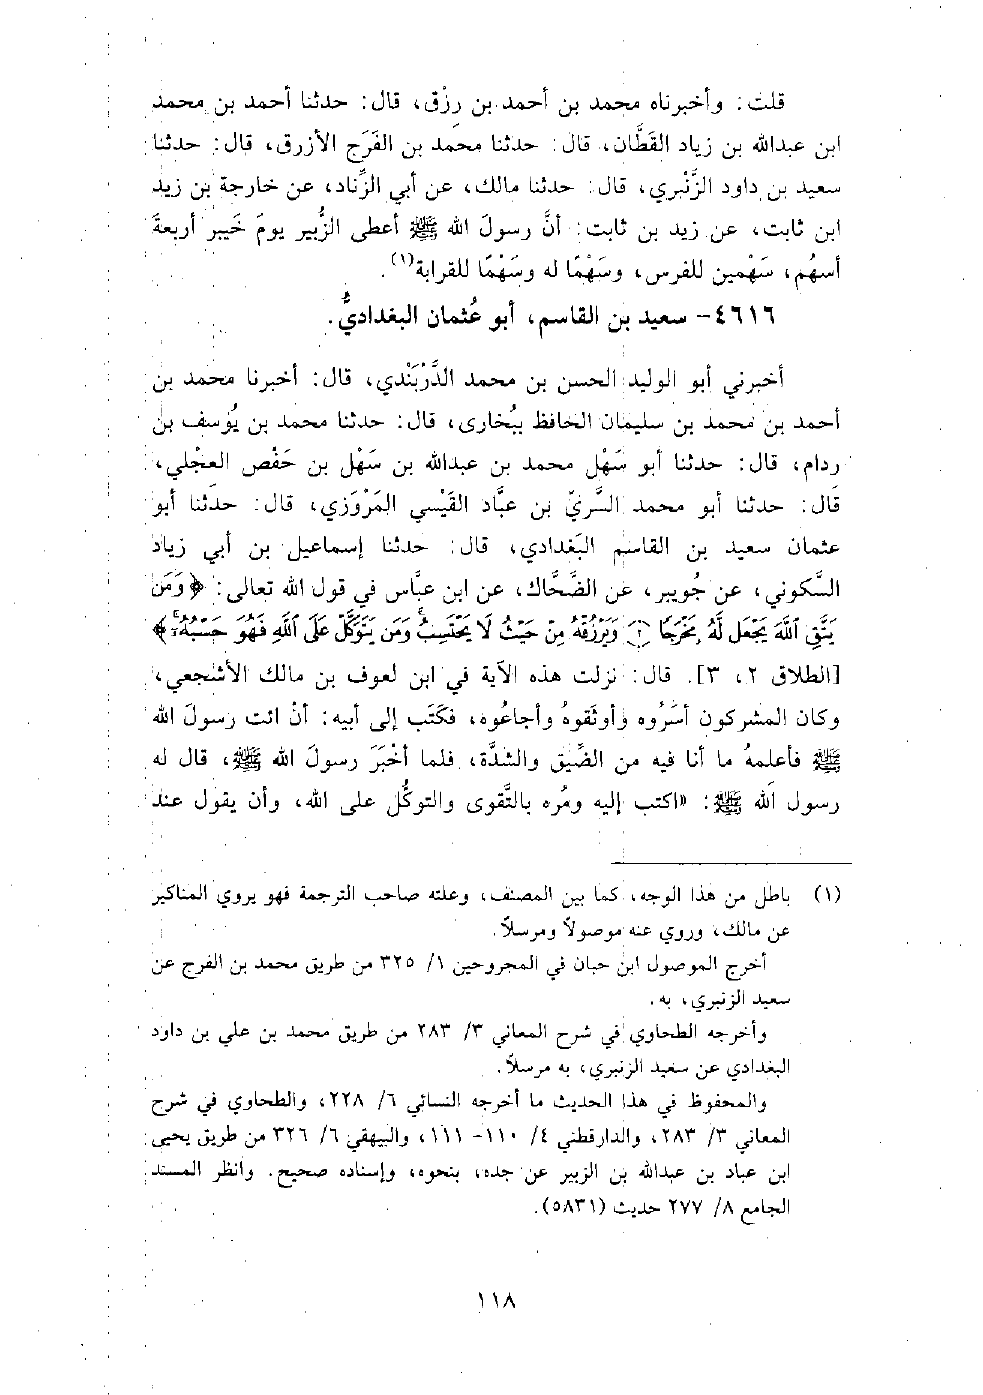 قلت: وأخبرناه محمد بن أحمد بن رِزْق، قال: حدثنا أحمد بن محمد
ابن عبدالله بن زياد القَطَّان، قال: حدثنا محمد بن الفَرَج الأزرق، قال: حدثنا
سعيد بن داود الزَّنْبري، قال: حدثنا مالك، عن أبي الزِّناد، عن خارجة بن زيد
ابن ثابت، عن زيد بن ثابت: أنَّ رسولَ الله ﷺ أعطى الزُّبير يومَ خَيبر أربعةَ
أسهُم، سَهْمين للفرس، وسَهْمًا له وسَهْمًا للقرابة(١).
٤٦١٦- سعيد بن القاسم، أبو عُثمان البغداديُّ.
أخبرني أبو الوليد الحسن بن محمد الدَّرْبَنْدي، قال: أخبرنا محمد بن
أحمد بن محمد بن سليمان الحافظ ببُخارى، قال: حدثنا محمد بن يُوسف بن
ردام، قال: حدثنا أبو سَهْل محمد بن عبدالله بن سَهْل بن حَفْص العجْلي،
قال: حدثنا أبو محمد السَّريّ بن عبَّاد القَيْسي المَرْوَزي، قال: حدثنا أبو
عثمان سعيد بن القاسم البَغدادي، قال: حدثنا إسماعيل بن أبي زياد
السَّكوني، عن جُويبر، عن الضَّحَّاك، عن ابن عبَّاس في قول الله تعالى: ﴿وَمَن
يَتَّقِ ٱللَّهَ يَجْعَل لَّهُۥ مَخْرَجًا ﴿٢﴾ وَيَرْزُقْهُ مِنْ حَيْثُ لَا يَحْتَسِبُ ۚ وَمَن يَتَوَكَّلْ عَلَى ٱللَّهِ فَهُوَ حَسْبُهُۥٓ ۚ﴾
[الطلاق ٢، ٣]. قال: نزلت هذه الآية في ابن لعوف بن مالك الأشجعي،
وكان المشركون أسَرُوه وأوثَقوهُ وأجاعُوه، فكَتَب إلى أبيه: أنْ ائت رسولَ الله
ﷺ فأعلمهُ ما أنا فيه من الضِّيق والشدَّة، فلما أخْبَرَ رسولَ الله ﷺ، قال له
رسول الله ﷺ: «اكتب إليه ومُره بالتَّقوى والتوكُّل على الله، وأن يقول عند
(١) باطل من هذا الوجه، كما بين المصنف، وعلته صاحب الترجمة فهو يروي المناكير
عن مالك، وروي عنه موصولاً ومرسلاً.
أخرج الموصول ابن حبان في المجروحين ١/ ٣٢٥ من طريق محمد بن الفرج عن
سعيد الزنبري، به.
وأخرجه الطحاوي في شرح المعاني ٣/ ٢٨٣ من طريق محمد بن علي بن داود
البغدادي عن سعيد الزنبري، به مرسلاً.
والمحفوظ في هذا الحديث ما أخرجه النسائي ٦/ ٢٢٨، والطحاوي في شرح
المعاني ٣/ ٢٨٣، والدارقطني ٤/ ١١٠- ١١١، والبيهقي ٦/ ٣٢٦ من طريق يحيى
ابن عباد بن عبدالله بن الزبير عن جده، بنحوه، وإسناده صحيح. وانظر المسند
الجامع ٨/ ٢٧٧ حديث (٥٨٣١).
١١٨